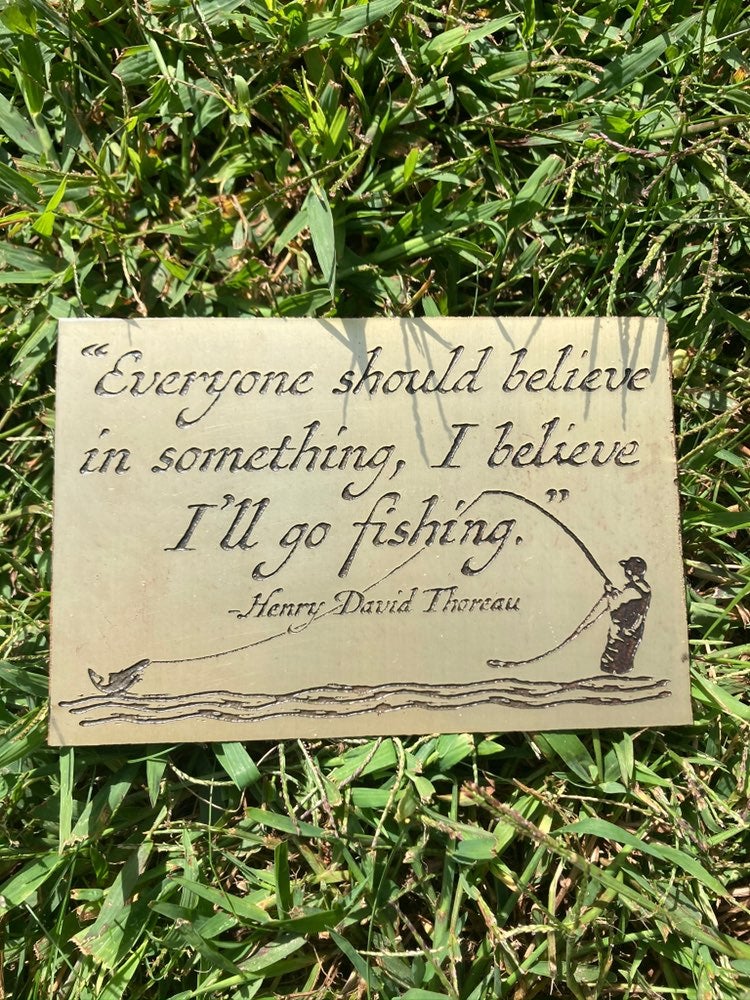 “Everyone should believe
in something, I believe
I’ll go fishing.”
-Henry David Thoreau